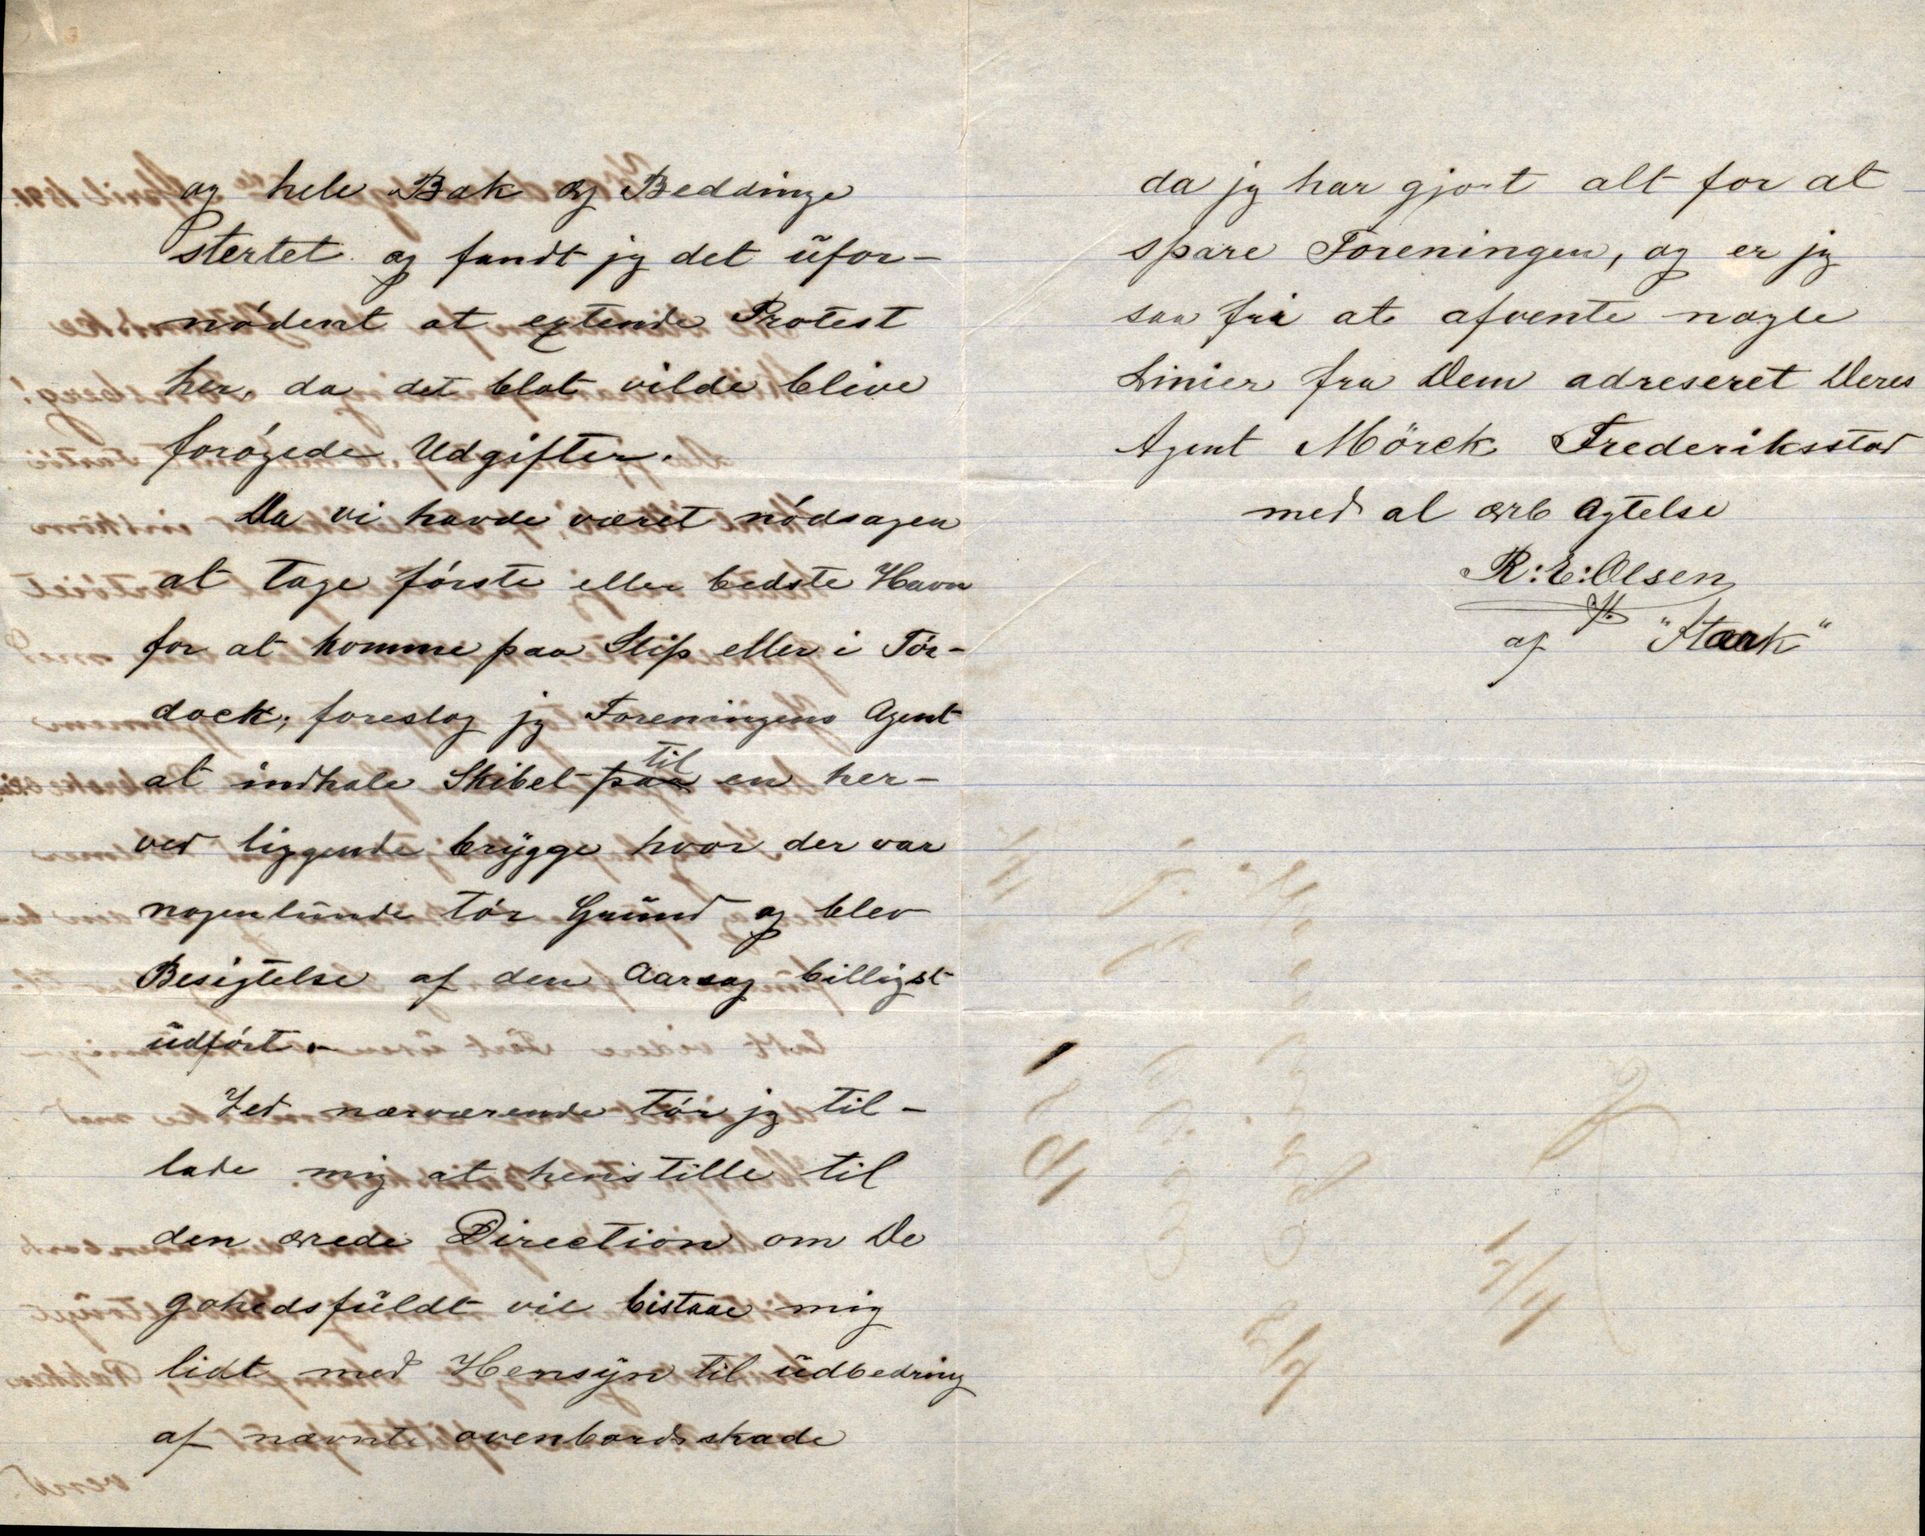 og hele Bak og Beddinge
stertet og fandt jg det ufor-
nødent at extende Protest
her, da det blot vilde blive
forøgede Udgifter.
Da vi havde været nødsagen
at tage første eller bedste Havn
for at komme paa Slip eller i Tør-
dock, foreslog jg Foreningens Agent
at indhale Skibet paa til en her-
ved liggende brygge hvor der var
nogenlunde tør Grund og blev
Besigtelse af den Aarsag billigst
udført.-
Ved nærværende tør jg til-
lade mig at henstille til
den ærede Direction om De
godhedsfuldt vil bistaae mig
lidt med Hensyn til udbedring
af nævnte ovenbordsskade
da jg har gjort alt for at
spare Foreningen, og er jg
saa fri at afvente nogle
Linier fra Dem adreseret Deres
Agent Mørck Frederiksstad
med al ærb Agtelse
R:E:Olsen
af "Stærk"